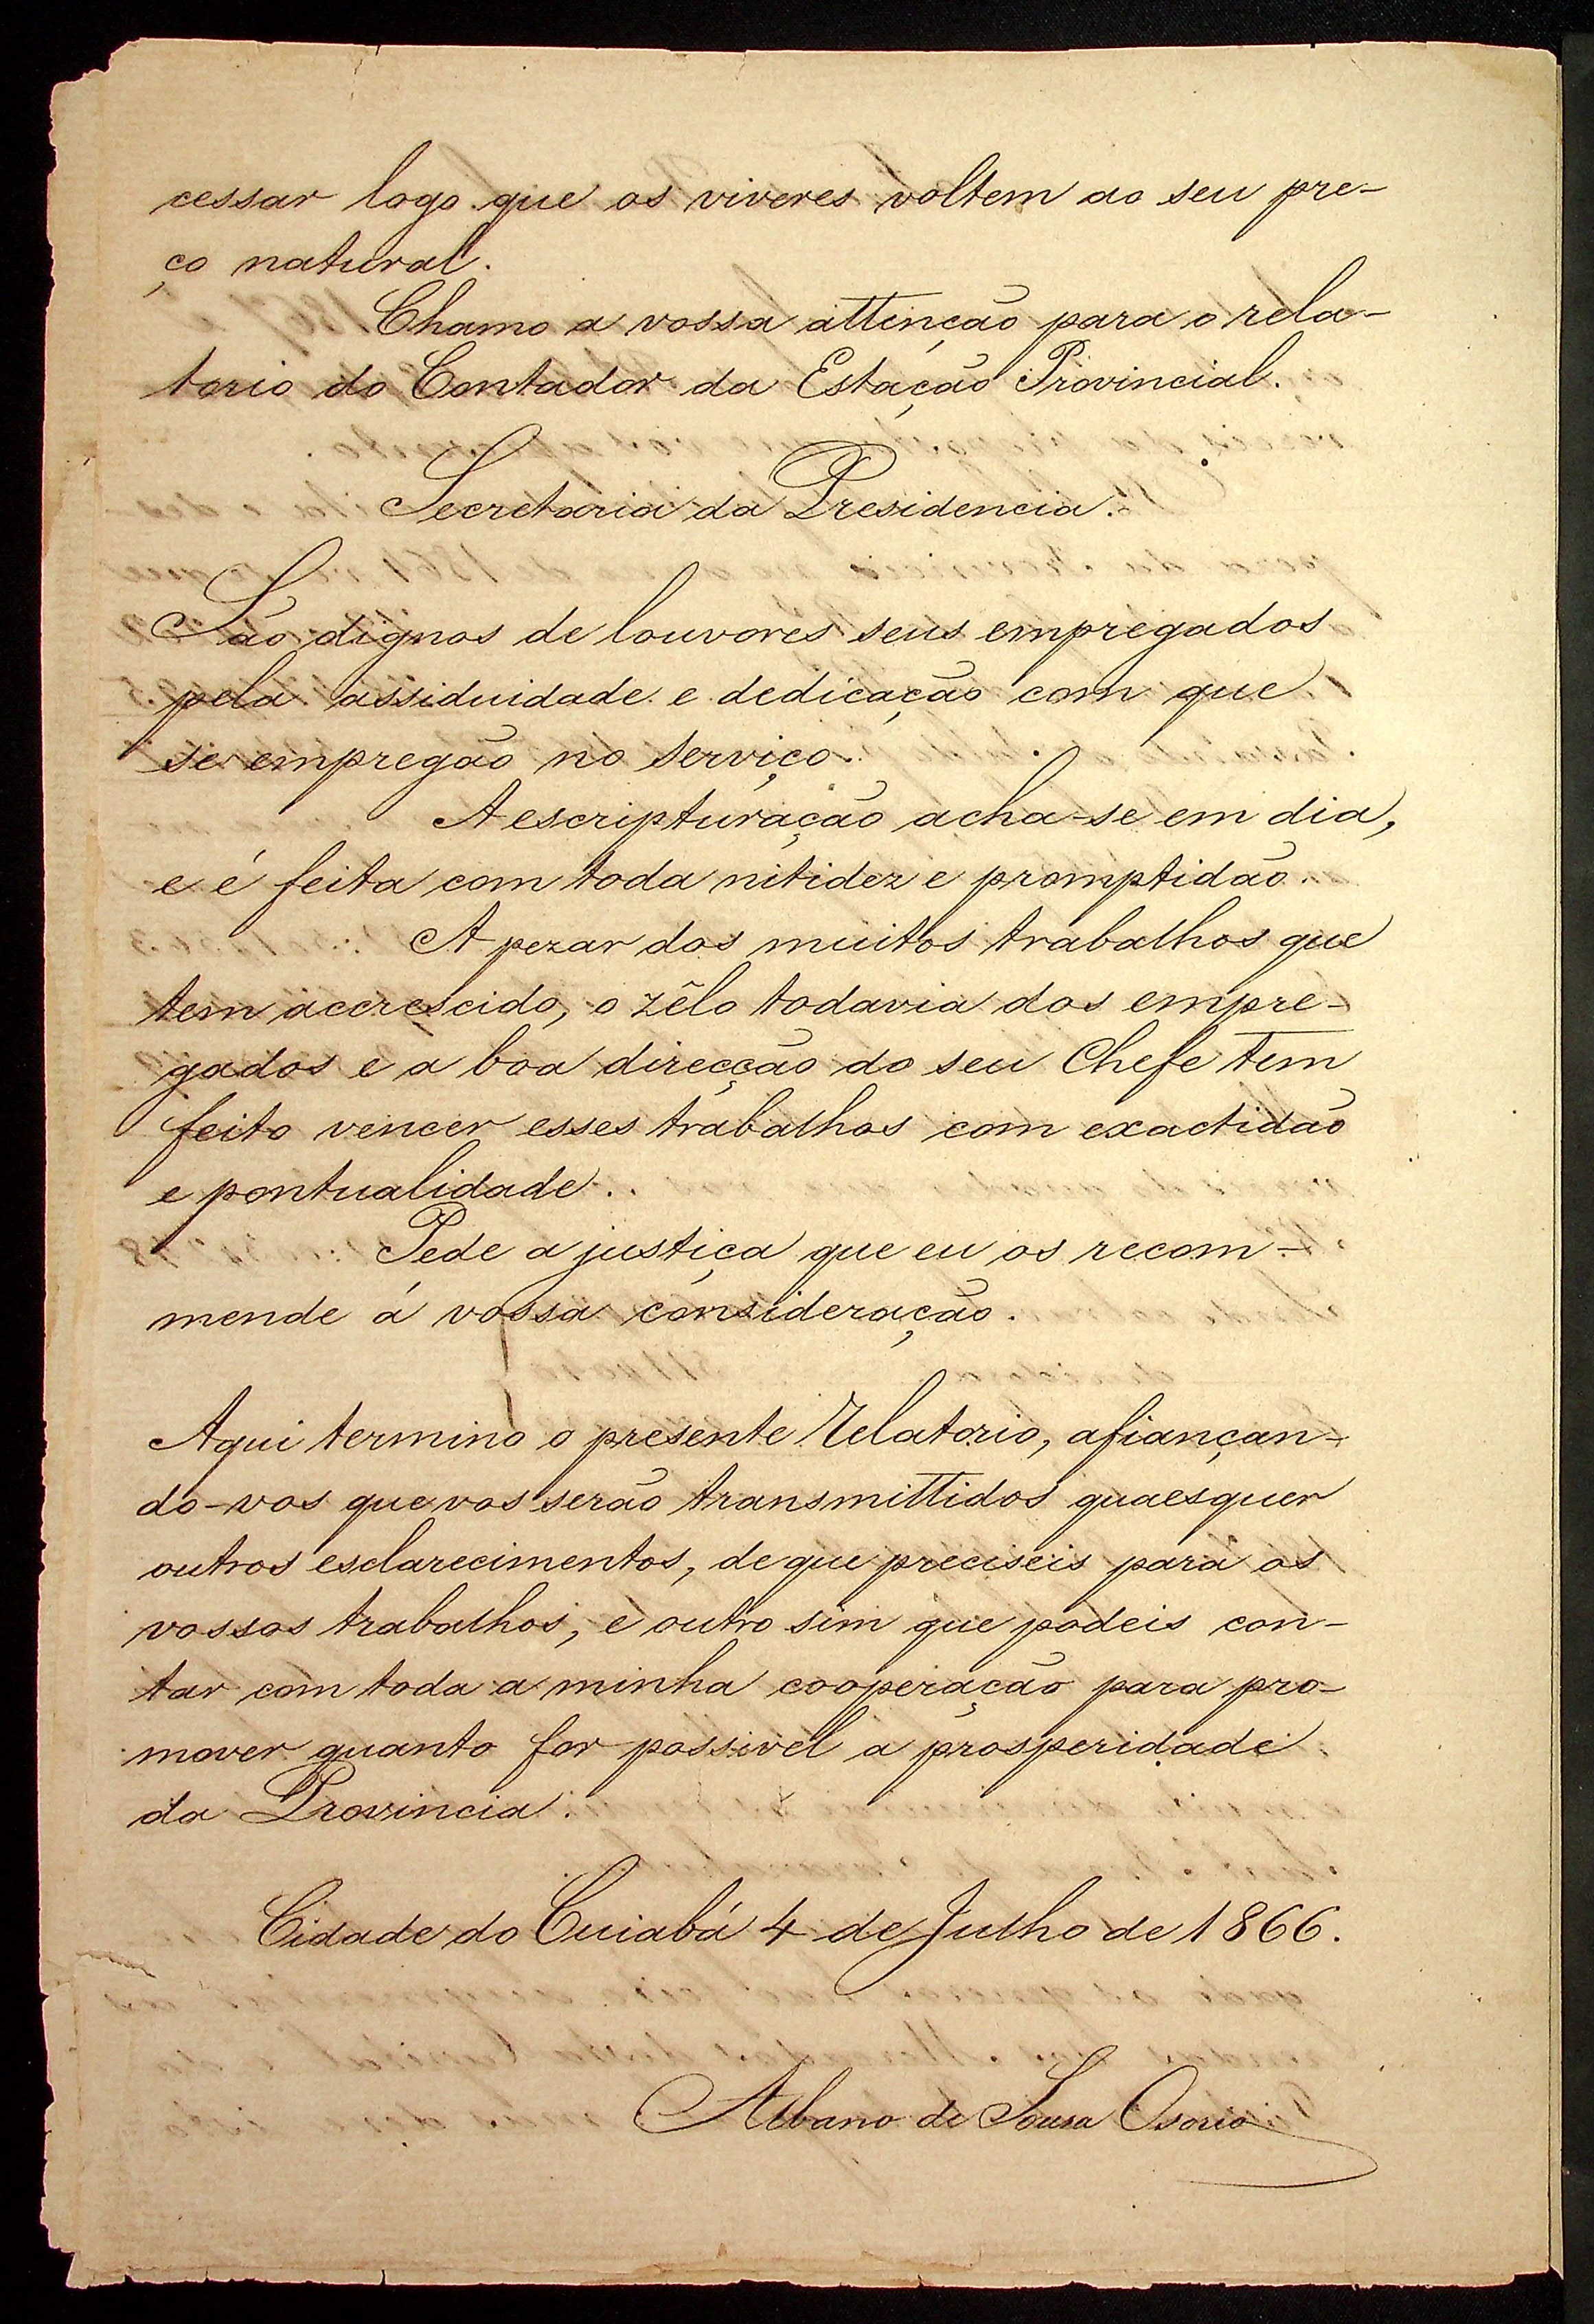 cessar logo que os viveres voltem ao seu pre-
ço natural.
Chamo a vossa attenção para o rela-
torio do Contador da Estação Provincial.
Secretaria da Presidencia.
São dignos de louvores seus empregados
pela assiduidade e dedicação com que
se empregão no serviço.
A escripturação acha-se em dia,
e é feita com toda nitidez e promptidão.
A pezar dos muitos trabalhos que
tem accrescido, o zêlo todavia dos empre-
gados e a boa direcção do seu Chefe tem
feito vencer esses trabalhos com exactidão
e pontualidade.
Pede a justiça que eu os recom-
mende á vossa consideração.
Aqui termino o presente Relatorio, afiançan-
do-vos que vos serão transmittidos quaesquer
outros esclarecimentos, de que preciseis para os
vossos trabalhos, e outro sim que podeis con-
tar com toda a minha cooperação para pro-
mover quanto for possivel a prosperidade
da Provincia.
Cidade do Cuiabá 4 de Julho de 1866.
Albano de Sousa Osorio